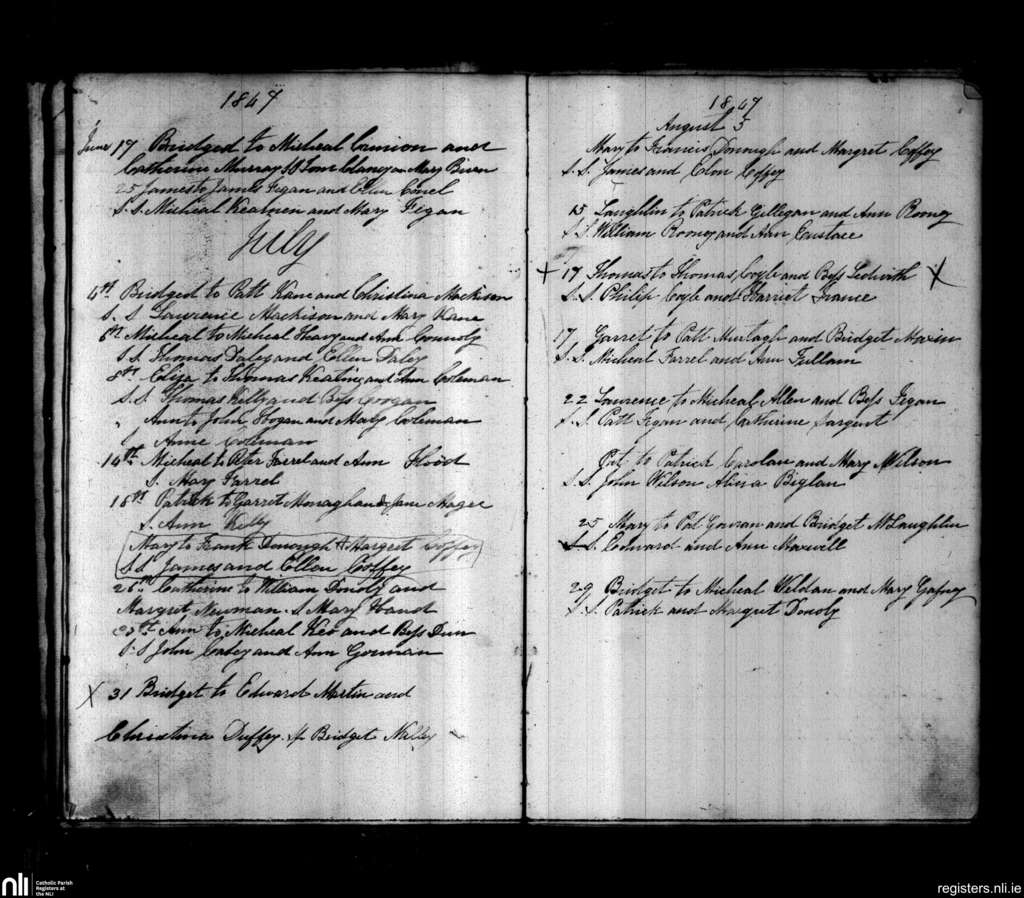 1847
June 17 Bridged to Micheal Canion and
Catherine Murray SS Tom Clancy Mary
25 James to James Fegan and Ellen
S. S. Micheal and Mary Fegan
July
Bridged to Patt Kane and Christina Mackison
S. S Lawrence Mackison and Mary Kane
6th Micheal to Micheal and Ann Connoly
S S Thomas Daley and Ellen Daley
8th Eliza to Thomas Keating and Ann Coleman
S. S. Thomas Kelly and Bess Googan
" Ann to John Hogan and Mary Coleman
S Anne Coleman
14th Micheal to Peter Farrel and Ann Flood
S. Mary Farrel
18th Patrick to Garret Monaghan & Jane Magee
S. Ann Kelly
Mary to Frank Donough & Margret Coffey
S S James and Ellen Coffey
Catherine to William Dooly and
Margret Newman. S Mary Hand
Ann to Micheal Keo and Bess Dun
S. S John Casey and Ann Gorman
X 31 Bridget to Edward Martin and
Christina Duffey. Sp Bridget
1847
August 5
Mary to Francis Donough and Margret Coffey
S. S. James and Elon Coffey
15 Laughlin to Patrick Gillegan and Ann Rooney
S. S. William Rooney and Ann Eustace
+ 17 Thomas to Thomas Coyle and Bess Ledwith X
S. S. Philip Coyle and Harriet France
17 Garret to Patt Murtagh and Bridget
S. S. Micheal Farrel and Ann Fullam
22 Lawrence to Micheal Allen and Bess Fegan
S. S. Patt Fegan and Catherine Sargent
Pat to Patrick Carolan and Mary Wilson
S. S. John Wilson Biglan
25 Mary to Pat and Bridget McLaughlin
S. S. Edward and Ann Maxwell
29 Bridget to Micheal Weldan and Mary Gafney
S. S. Patrick and Margret Dooly
nli
Catholic Parish
Registers at
the NLI
registers.nli.ie